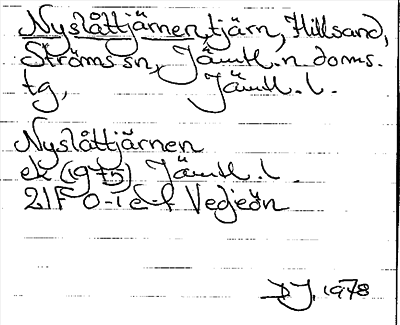 Nyslåttjärnen, tjärn, Hillsand,
Ströms sn, Jämtl. n doms.
tg, Jämtl. l.
Nyslåttjärnen
ek (1975) Jämtl. l.
21F 0-1 e-f Vedjeön
DJ, 1978